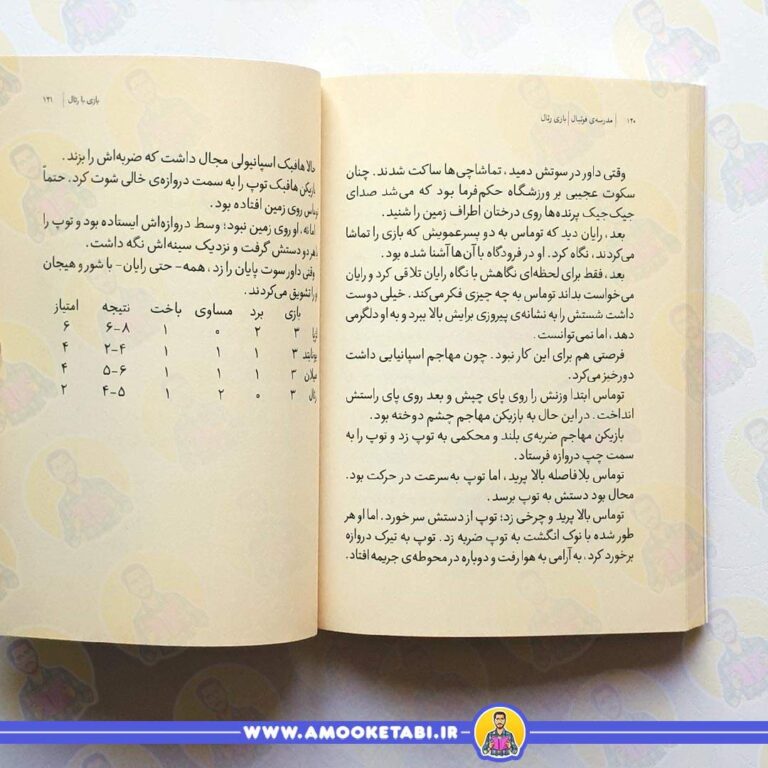 ۱۲۰ | مدرسه‌ی فوتبال | بازی رئال
وقتی داور در سوتش دمید، تماشاچی‌ها ساکت شدند. چنان
سکوت عجیبی بر ورزشگاه حکم‌فرما بود که می‌شد صدای
جیک‌جیک پرنده‌ها روی درختان اطراف زمین را شنید.
بعد، رایان دید که توماس به دو پسرعمویش که بازی را تماشا
می‌کردند، نگاه کرد. او در فرودگاه با آن‌ها آشنا شده بود.
بعد، فقط برای لحظه‌ای نگاهش با نگاه رایان تلاقی کرد و رایان
می‌خواست بداند توماس به چه چیزی فکر می‌کند. خیلی دوست
داشت شستش را به نشانه‌ی پیروزی برایش بالا ببرد و به او دلگرمی
دهد، اما نمی‌توانست.
فرصتی هم برای این کار نبود. چون مهاجم اسپانیایی داشت
دورخیز می‌کرد.
توماس ابتدا وزنش را روی پای چپش و بعد روی پای راستش
انداخت. در این حال به بازیکن مهاجم چشم دوخته بود.
بازیکن مهاجم ضربه‌ی بلند و محکمی به توپ زد و توپ را به
سمت چپ دروازه فرستاد.
توماس بلافاصله بالا پرید، اما توپ به‌سرعت در حرکت بود.
محال بود دستش به توپ برسد.
توماس بالا پرید و چرخی زد؛ توپ از دستش سر خورد. اما او هر
طور شده با نوک انگشت به توپ ضربه زد. توپ به تیرک دروازه
برخورد کرد، به آرامی به هوا رفت و دوباره در محوطه‌ی جریمه افتاد.
بازی با رئال | ۱۲۱
حالا هافبک اسپانیولی مجال داشت که ضربه‌اش را بزند.
بازیکن هافبک توپ را به سمت دروازه‌ی خالی شوت کرد. حتماً
توماس روی زمین افتاده بود.
اما نه، او روی زمین نبود؛ وسط دروازه‌اش ایستاده بود و توپ را
با هر دو دستش گرفت و نزدیک سینه‌اش نگه داشت.
وقتی داور سوت پایان را زد، همه- حتی رایان- با شور و هیجان
او را تشویق می‌کردند.
بازی برد مساوی باخت نتیجه امتیاز
۳ ۲ ۰ ۱ ۶-۸ ۶
۳ ۱ ۱ ۱ ۲-۴ ۴
میلان ۳ ۱ ۱ ۱ ۵-۶ ۴
رئال ۳ ۰ ۲ ۱ ۴-۵ ۲
WWW.AMOOKETABI.IR